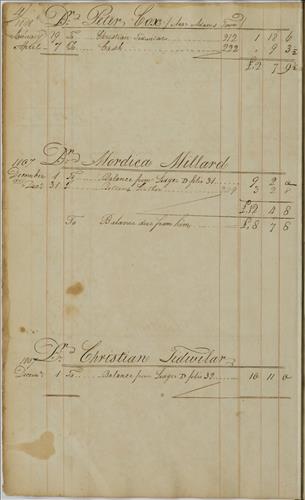 41
Dr. Peter Cox (Near Adams Town)
1798
January 19 To Christian Tidwilar 212 1 18 6
April 7 To Cash 222 " 9 3½
£2 7 9½
1797
Dr. Mordica Millard
December 1 To Balance from Ledger D folio 31 9 2 0
31 219 3 2 8
£12 4 8
To Balance due from him £8 7 8
Dr. Christian Tidwilar
Decem. 1 To Balance from Ledger D folio 32 10 11 0